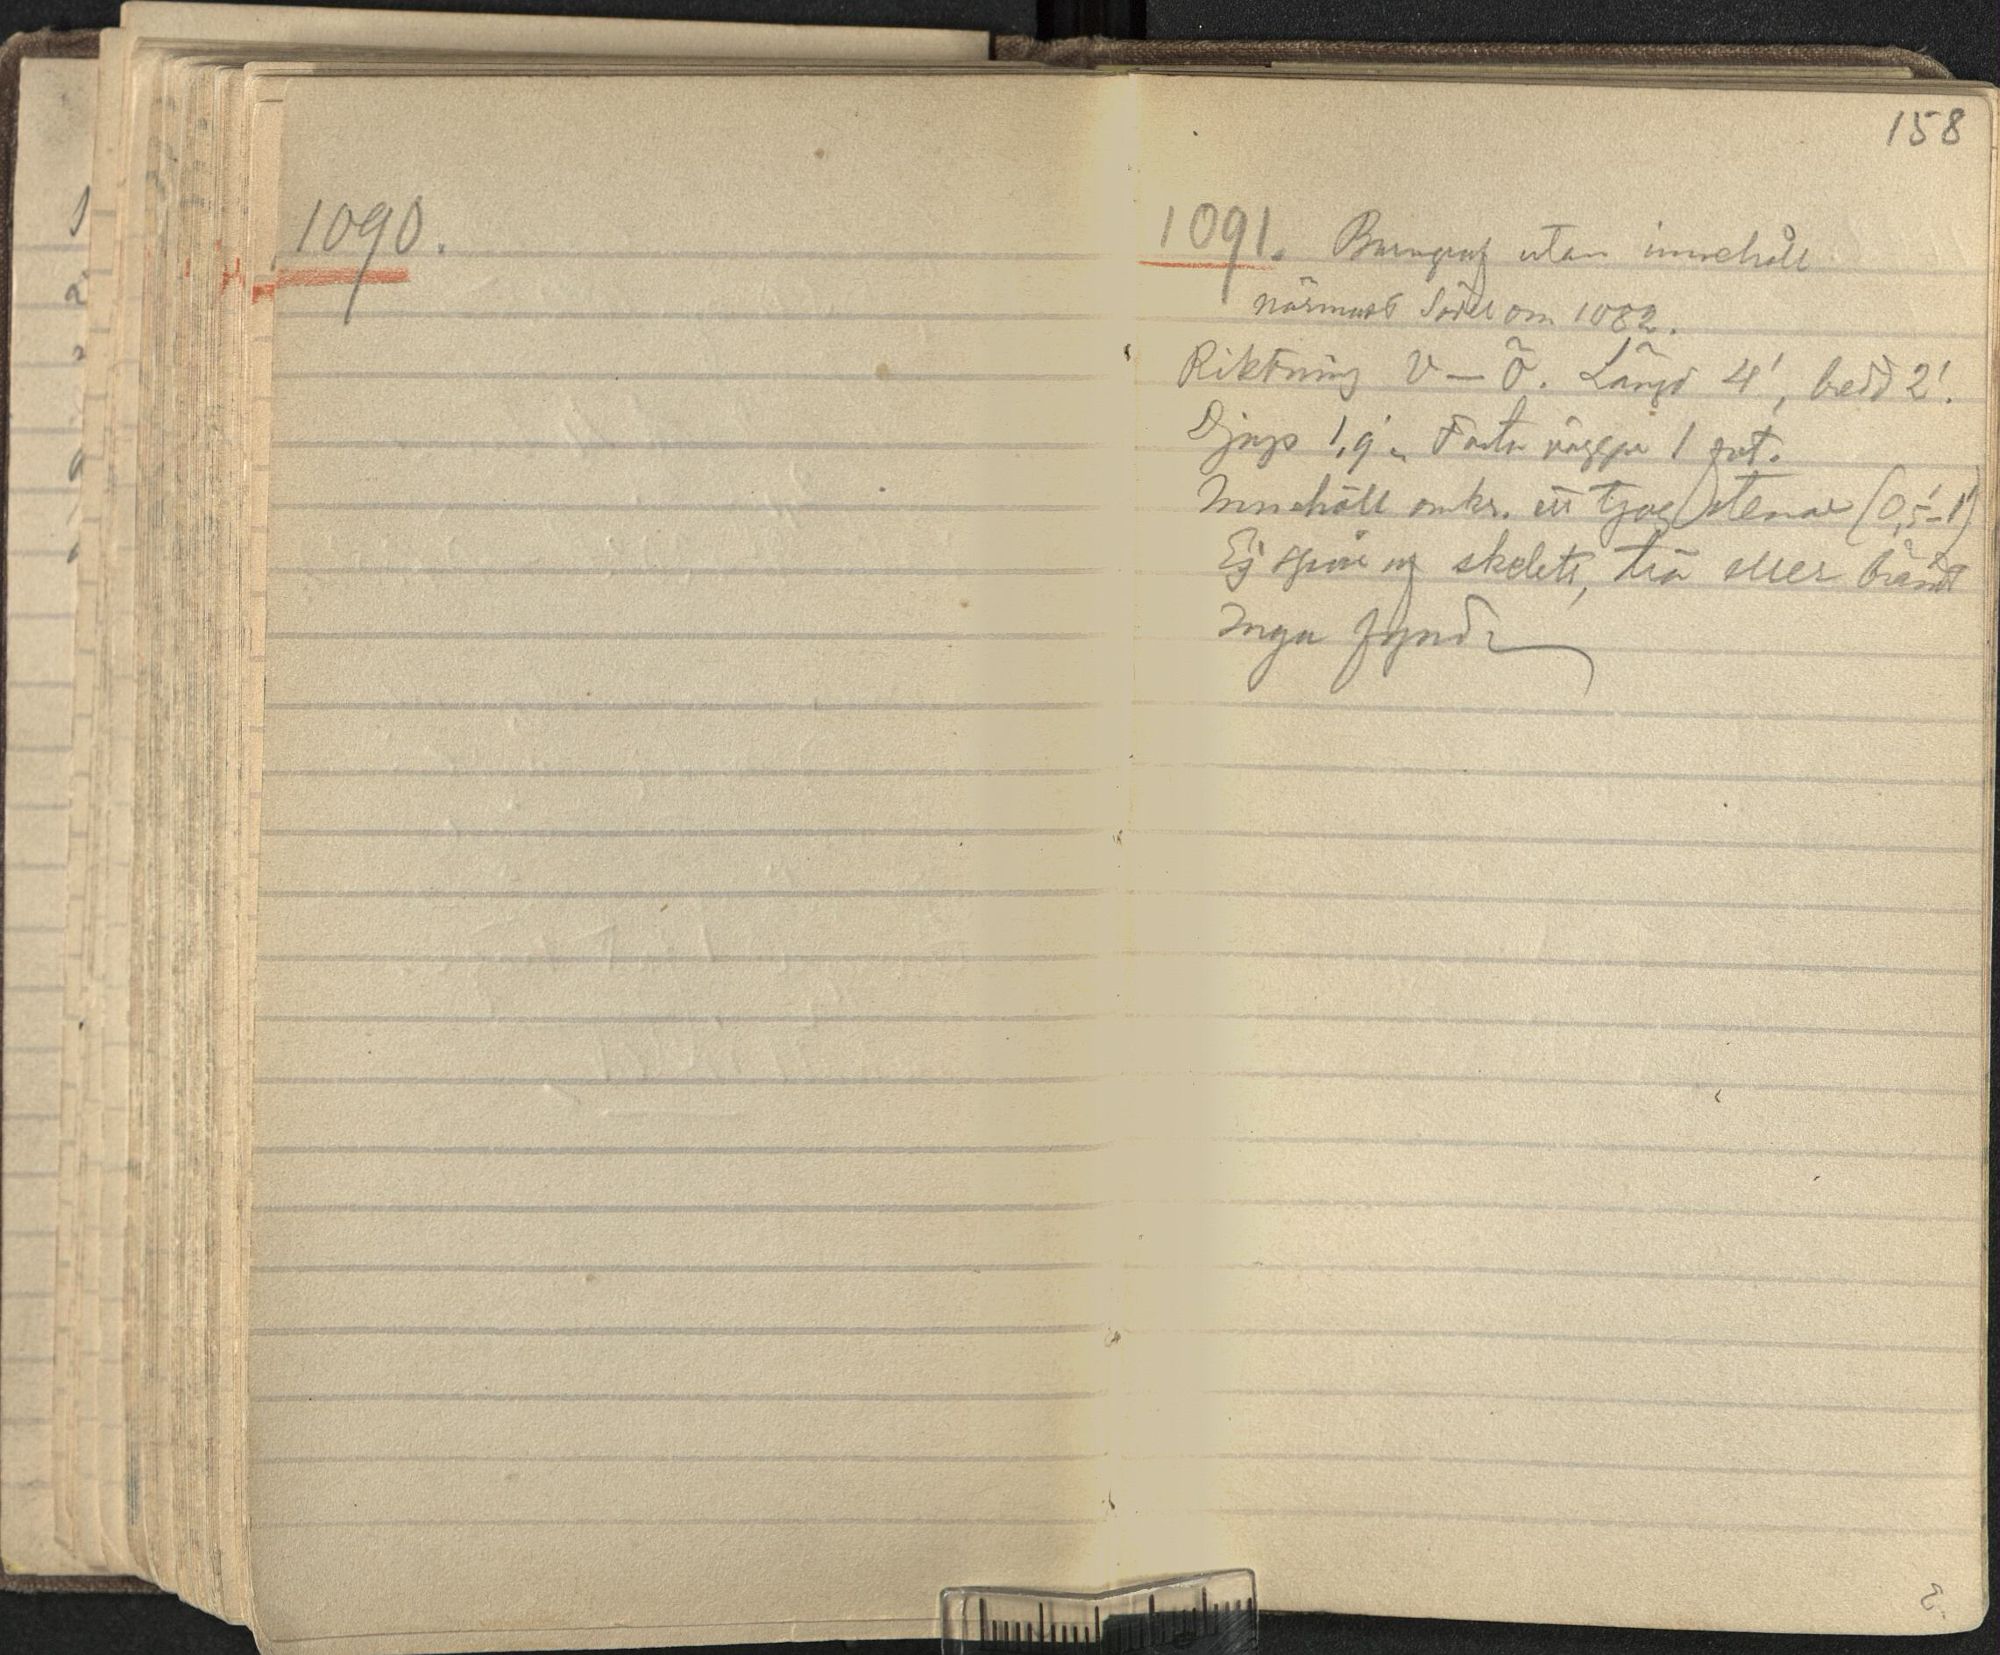 1090.
158
1091. Barngraf utan innehåll
närmast Söder om 1082.
Riktning V — Ö. Längd 4', bredd 2'.
Djup 1,9'. Fasta väggar 1 fot.
Innehöll omkr. ett tjog stenar (0,5'-1')
Ej spår af skelett, trä eller brändt
Inga fynd